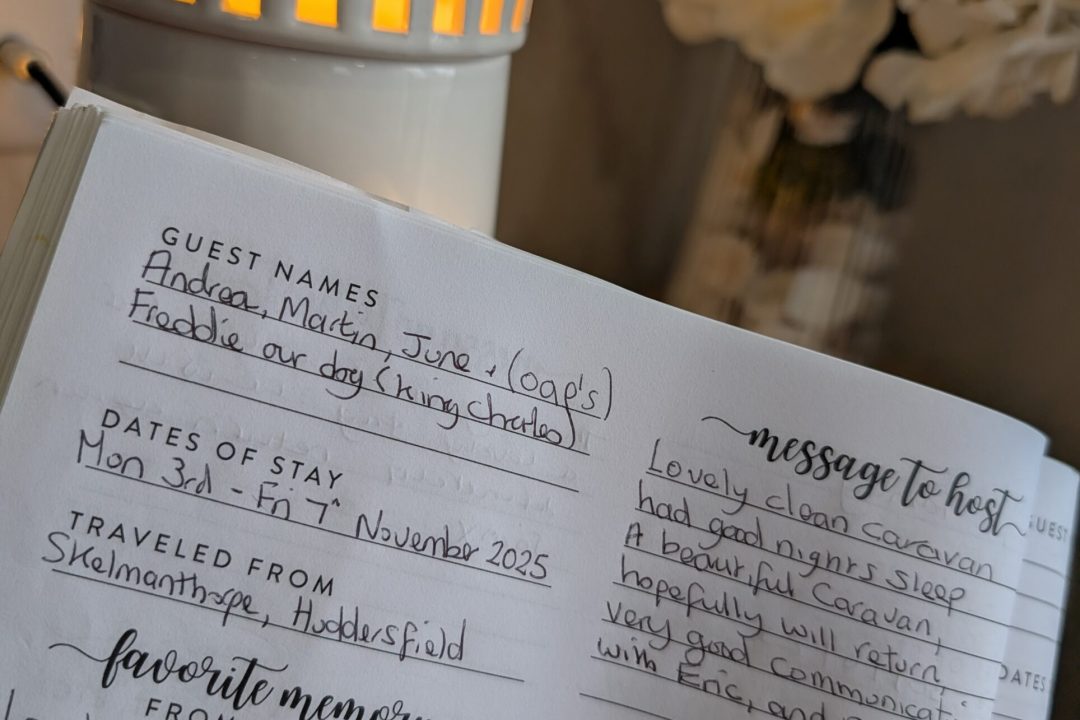 GUEST NAMES
Andrea, Martin, June + (oap's)
Freddie our dog (King Charles)
DATES OF STAY
Mon 3rd - Fri 7th November 2025
TRAVELED FROM
Skelmanthorpe, Huddersfield
favorite
FROM
message to host
Lovely clean caravan
had good nights sleep
A beautiful Caravan,
hopefully will return,
very good communicat
with Eric, and
GUEST
DATES